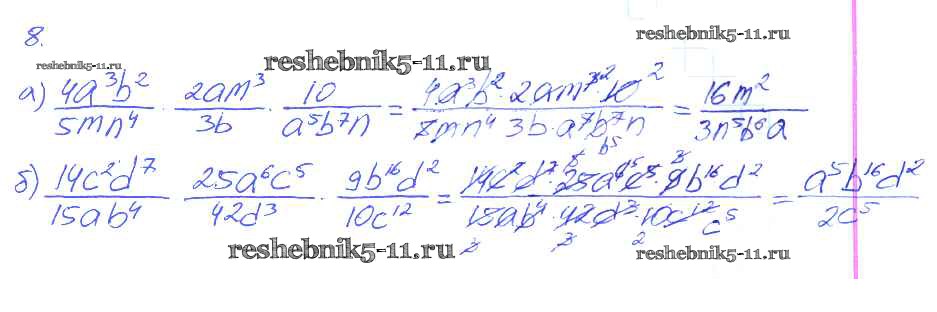 8.
reshebnik5-11.ru
reshebnik5-11.ru
reshebnik5-11.ru
а) 4a³b²/5mn⁴ · 2am³/3b · 10/a⁵b⁷n = 4a³b² · 2am³ · 10 2 2/5mn⁴ 3b · a⁷b⁷n b⁵ = 16m²/3n⁵b⁶a
б) 14c²d⁷/15ab⁴ 25a⁶c⁵/42d³ · 9b¹⁶d²/10c¹² = 14c²d⁷ · 25a⁶c⁵ · 9b¹⁶d² 5 5 3/15ab⁴ · 42d³ · 10c¹² c⁵ 3 3 2 = a⁵b¹⁶d²/2c⁵
reshebnik5-11.ru
reshebnik5-11.ru